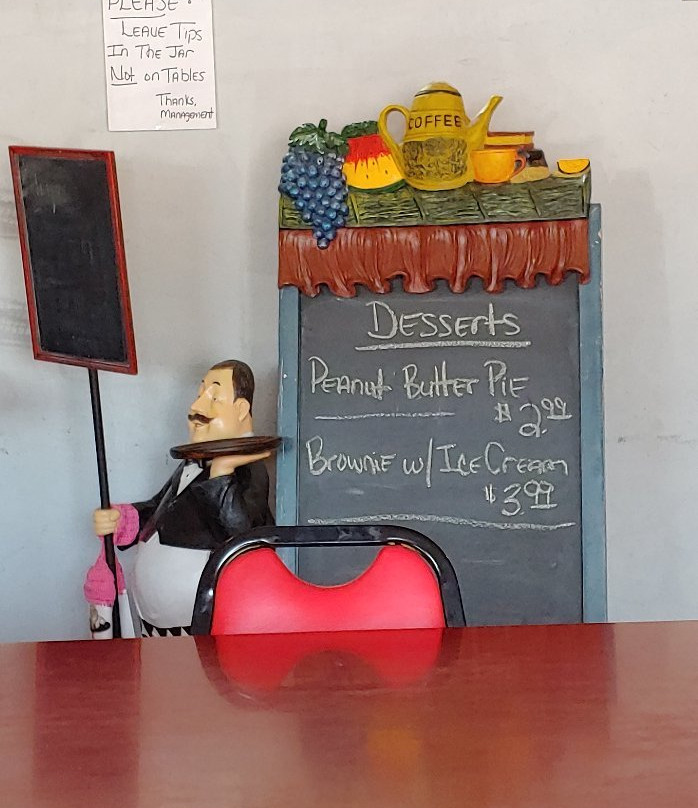 PLEASE:
LEAVE TIPS
IN THE JAR
NOT ON TABLES
THANKS,
MANAGEMENT
COFFEE
DESSERTS
PEANUT BUTTER PIE
$2.99
BROWNIE W/ ICE CREAM
$3.99